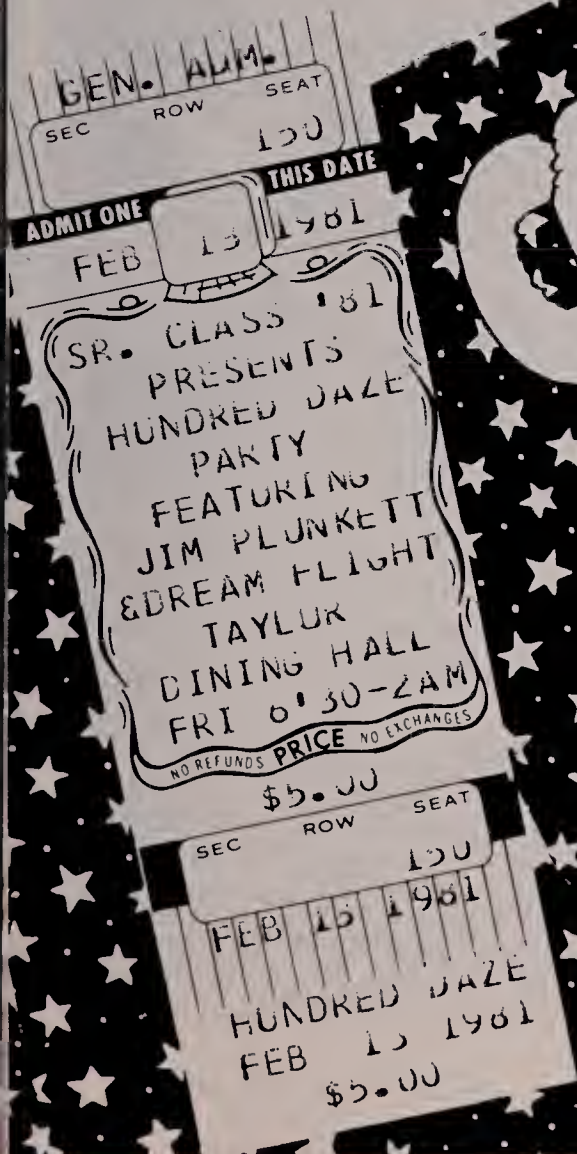 GEN. ADM.
SEC ROW SEAT
ADMIT ONE THIS DATE
FEB 13 1981
SR. CLASS '81
PRESENTS
HUNDRED DAZE
PARTY
FEATURING
JIM PLUNKETT
&DREAM FLIGHT
TAYLOR
DINING HALL
FRI
NO REFUNDS PRICE NO EXCHANGES
$5.00
SEC ROW SEAT
FEB 13 1981
HUNDRED DAZE
FEB 13 1981
$5.00